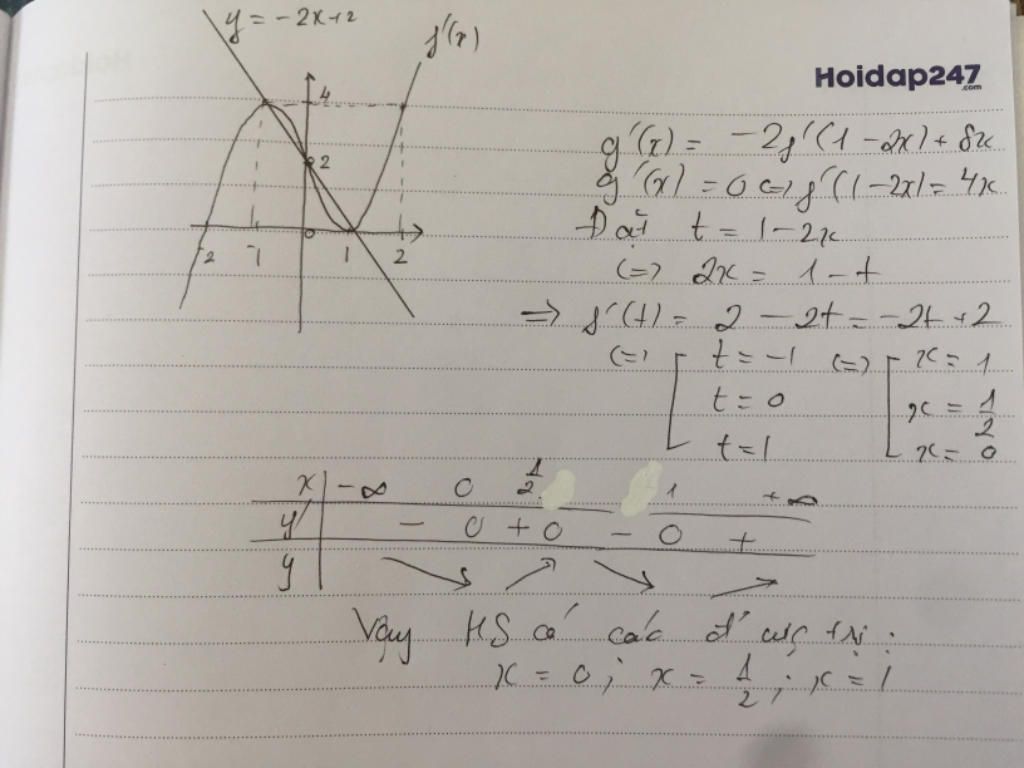 y = -2x+2
f'(x)
Hoidap247
.com
4
2
0
-2 -1 1 2
g'(x) = -2f'(1-2x) + 8x
g'(x) = 0 <=> f'(1-2x) = 4x
Đặt t = 1-2x
(=) 2x = 1-t
=> f'(t) = 2 - 2t = -2t + 2
(=) [ t = -1 (=) [ x = 1
t = 0 x = 1/2
t = 1 x = 0
x | -∞ 0 1/2 1 +∞
y' | - 0 + 0 - 0 + 
y | ↘ ↗ ↘ ↗
Vậy HS có các đ' cực trị:
x = 0; x = 1/2; x = 1